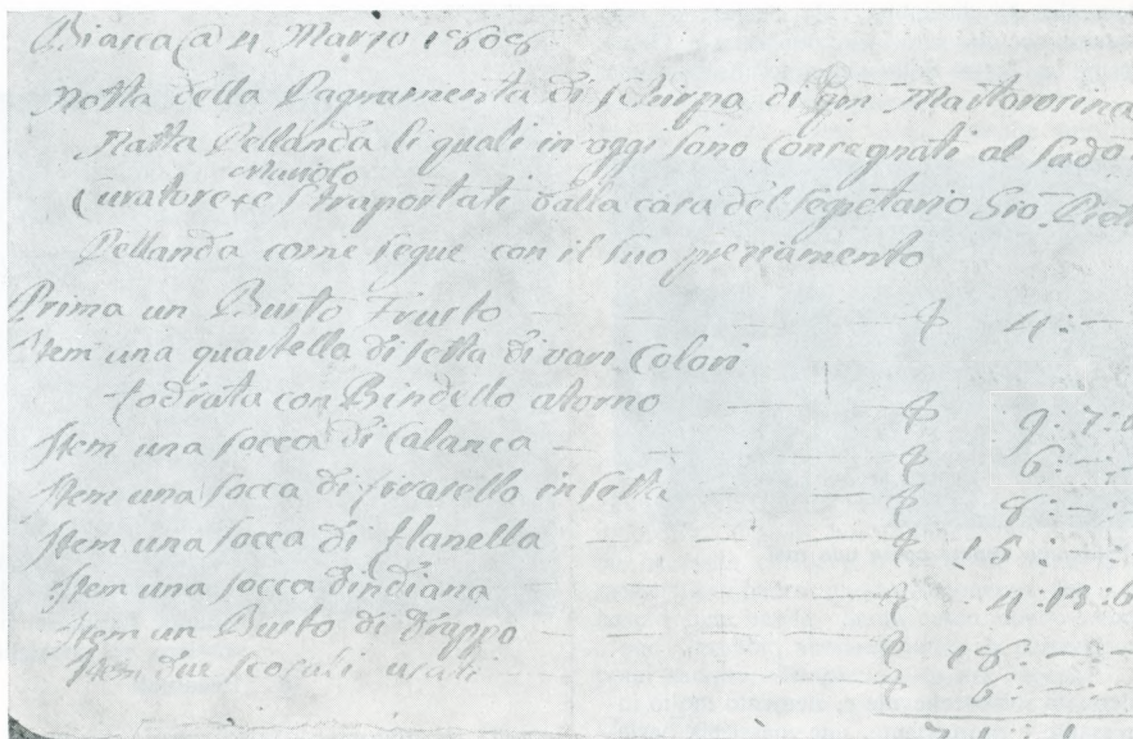 Biasca @ 4 Marzo 1808
Notta della Pagnamenta di schirpa di
Natta Pellanda li quali in oggi sono Consegnati al
Curatore e straportati dalla casa del segretario Gio. 
Pellanda come segue con il suo preziamento
Prima un Busto Frusto 4:—
Item una quartella di setta di vari Colori
fodrata con Bindello atorno 9:7:
Item una socca di Calanca 6:—:—
Item una socca di firasello in setta 8:—:—
Item una socca di flanella 15:—:
Item una socca dindiana 4:13:6
Item un Busto di Drappo 18:—:—
Item due scosali usati 6:—:—